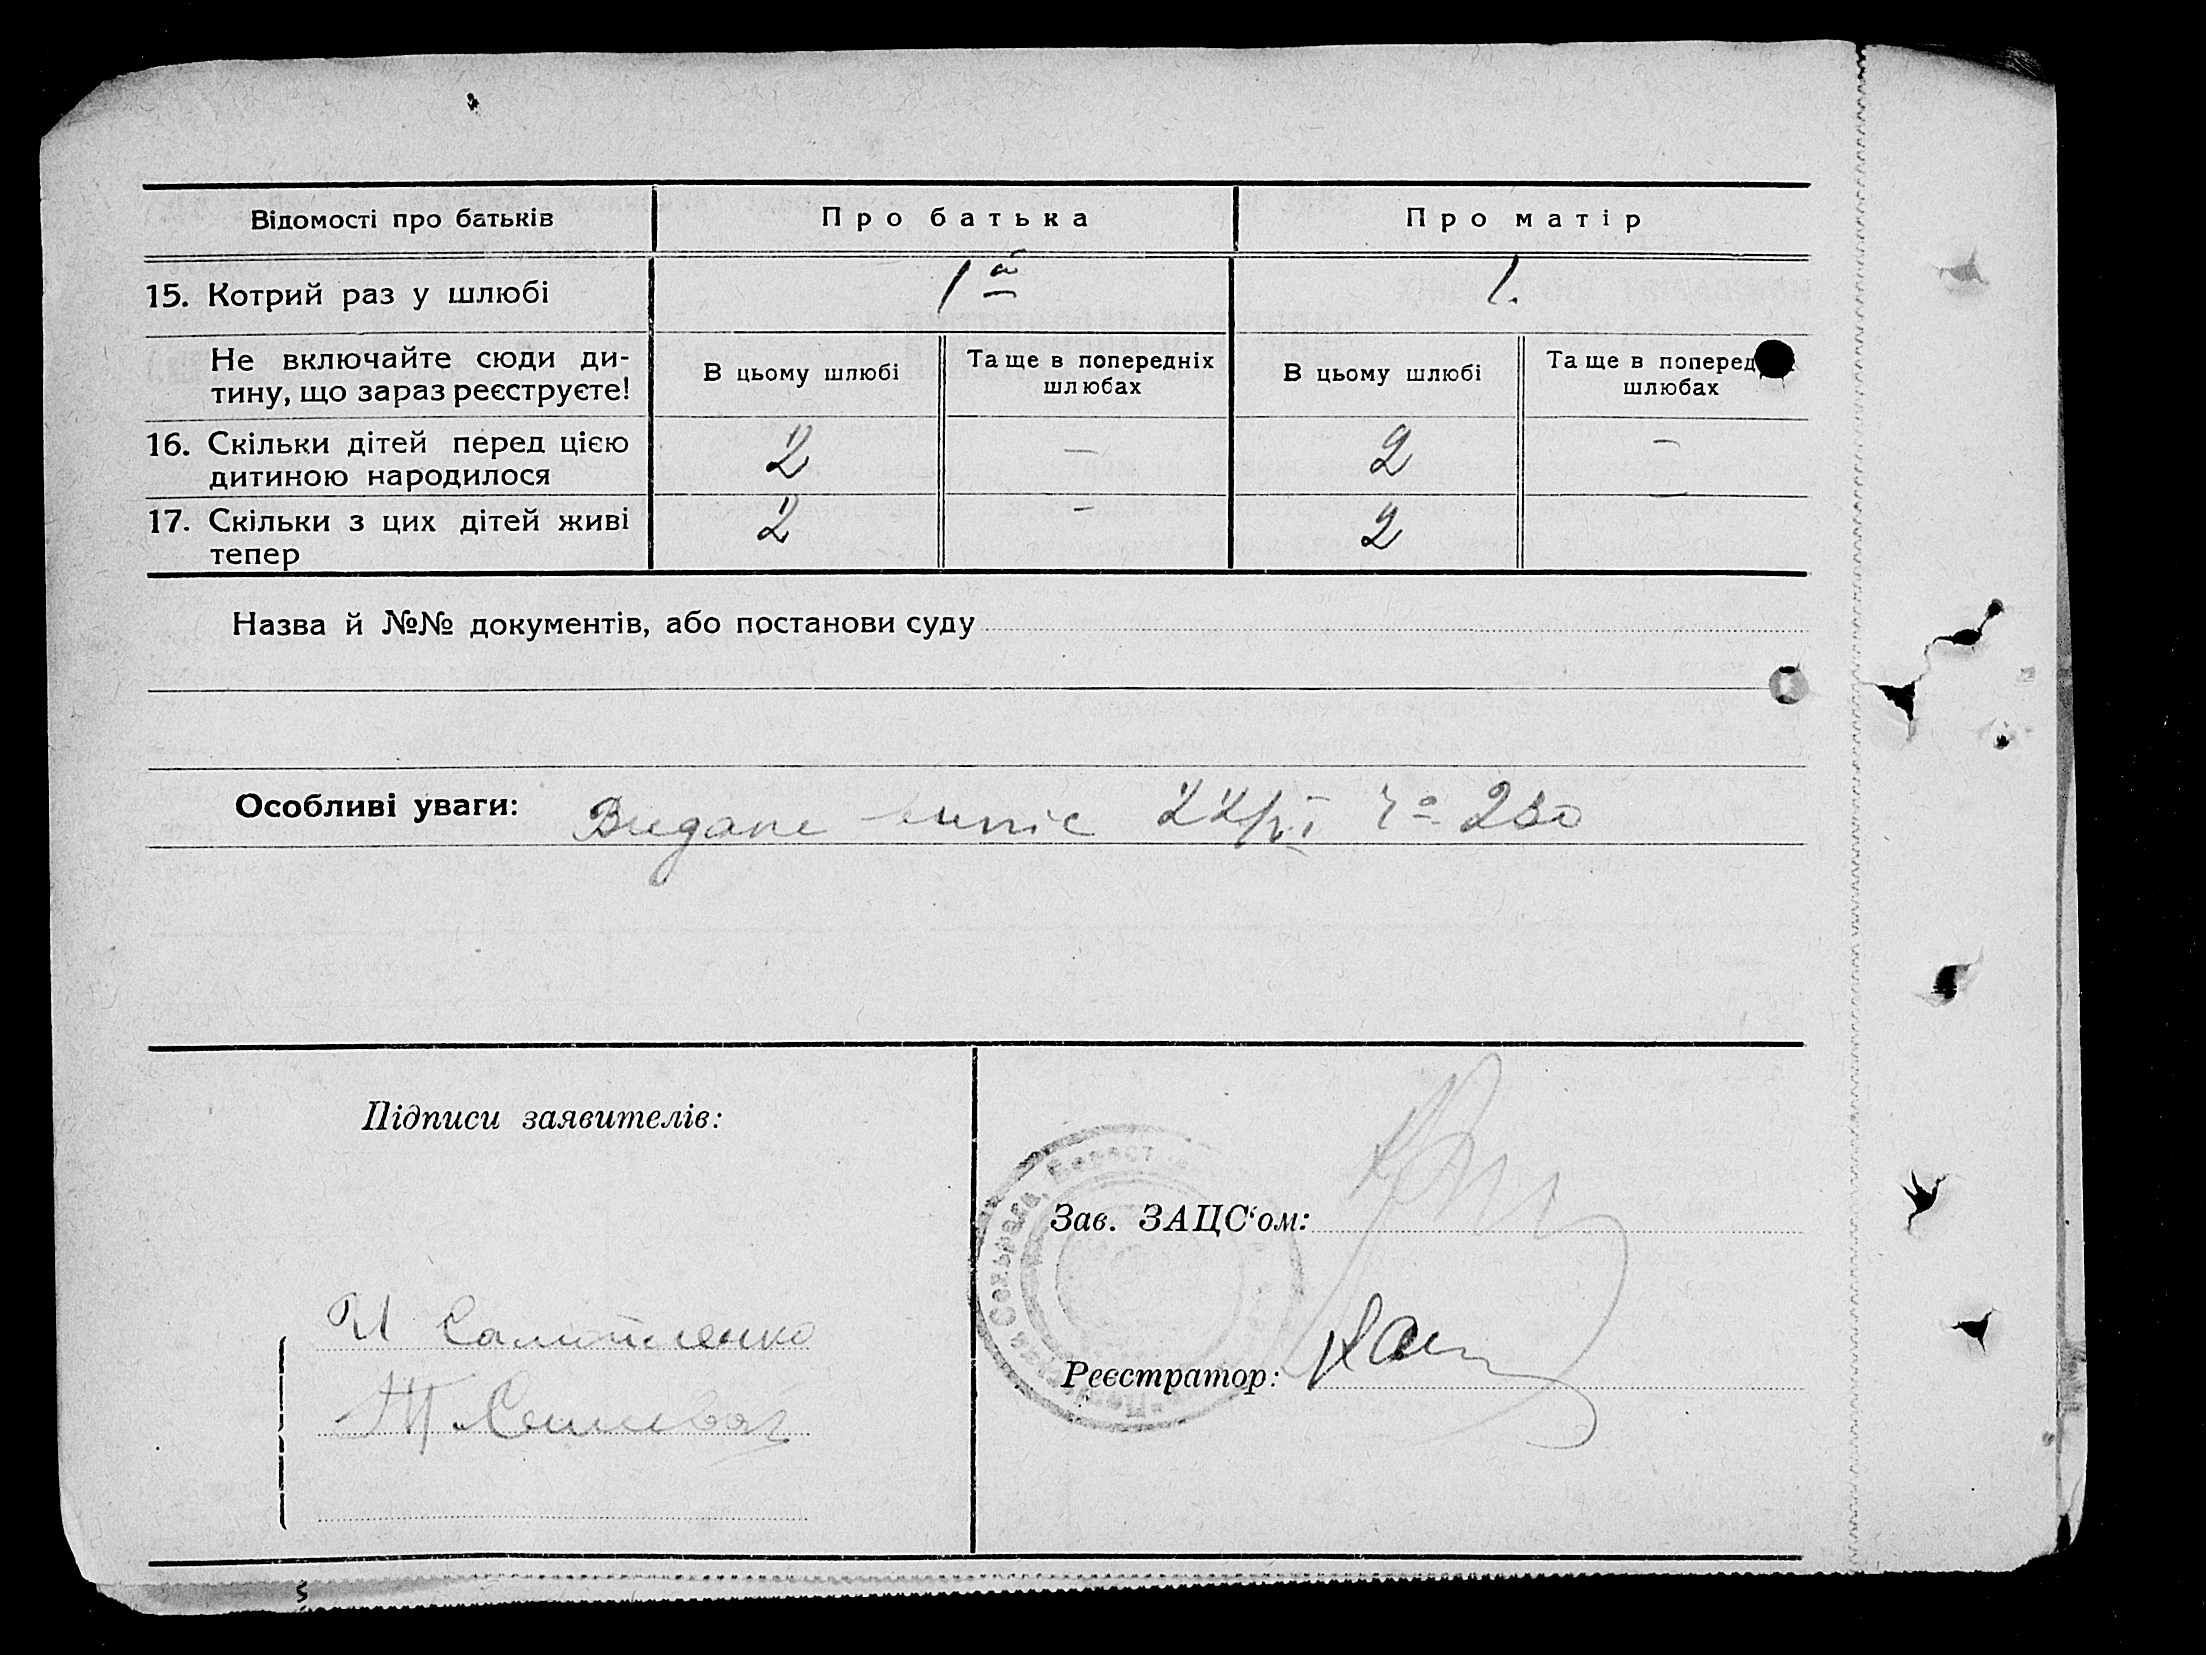 Відомості про батьків Про батька Про матір
15. Котрий раз у шлюбі 1й 1.
Не включайте сюди ди-
тину, що зараз реєструєте!
В цьому шлюбі
Та ще в попередніх
шлюбах
В цьому шлюбі
Та ще в поперед
шлюбах
16. Скільки дітей перед цією
дитиною народилося
2 — 2 —
17. Скільки з цих дітей живі
тепер
2 - 2
Назва й №№ документів, або постанови суду
Особливі уваги: 230
Підписи заявителів:
Зав. ЗАЦС‘ом:
Реєстратор: